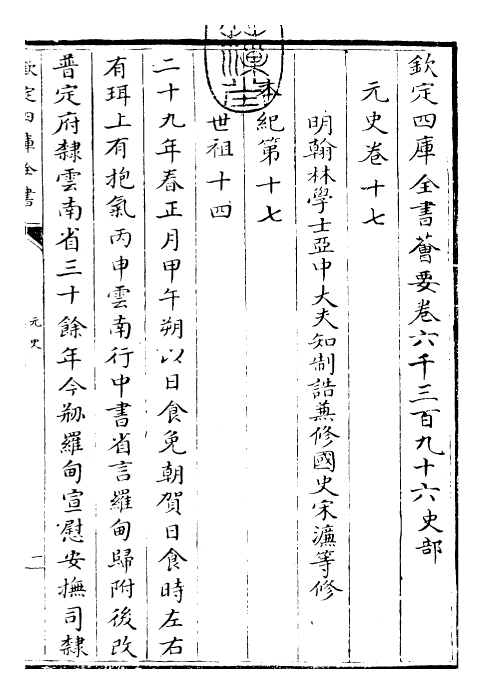 欽定四庫全書薈要卷六千三百九十六史部
元史卷十七
明翰林學士亞中大夫知制誥兼修國史宋濂等修
本紀第十七
世祖十四
二十九年春正月甲午朔以日食免朝賀日食時左右
有珥上有抱氣丙申雲南行中書省言羅甸歸附後改
普定府隸雲南省三十餘年今剙羅甸宣慰安撫司隸
欽定四庫全書
元史